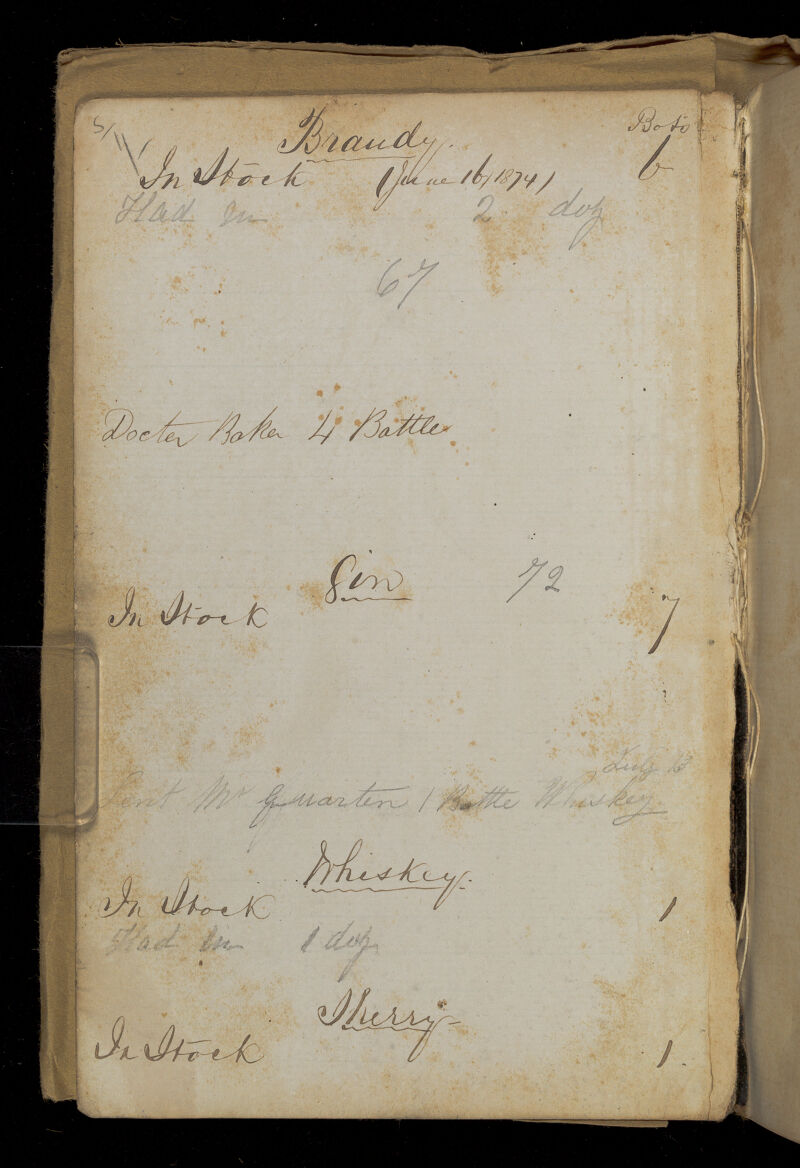 Brandy. Bots
In Stock (June 16, 1874) 6
Had in 2 doz
67
Docter Baker 4 Bottle
Gin 72
In Stock 7
July
Sent Mr Quarten 1 Bottle Whiskey
Whiskey.
In Stock 1
Had in 1 doz
Sherry
In Stock 1.